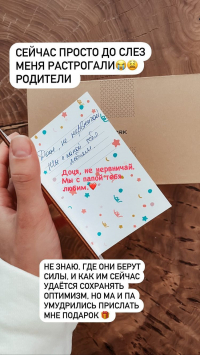 СЕЙЧАС ПРОСТО ДО СЛЕЗ
МЕНЯ РАСТРОГАЛИ😭😩
РОДИТЕЛИ
Доця, не нервничай.
Мы с папой тебя
любим.
Доця, не нервничай.
Мы с папой тебя
любим.❤️
НЕ ЗНАЮ. ГДЕ ОНИ БЕРУТ
СИЛЫ. И КАК ИМ СЕЙЧАС
УДАЁТСЯ СОХРАНЯТЬ
ОПТИМИЗМ. НО МА И ПА
УМУДРИЛИСЬ ПРИСЛАТЬ
МНЕ ПОДАРОК 🎁